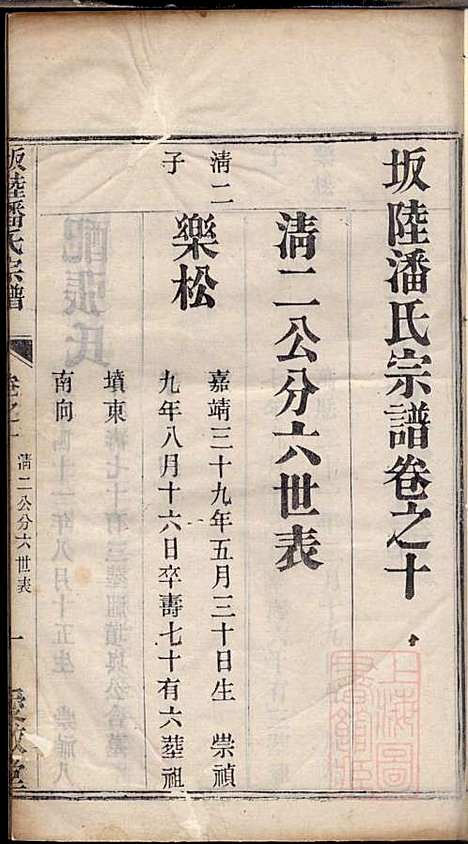 坂陸潘氏宗譜卷之十
清二公分六世表
清二子
樂松
嘉靖三十九年五月三十日生 崇禎
九年八月十六日卒壽七十有六塟祖
墳東
南向
坂陸潘氏宗譜
卷之十 清二公分六世表 一
上海圖書館藏